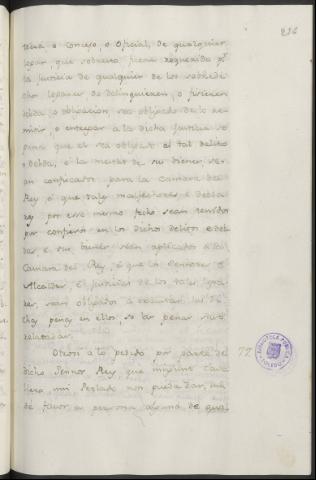 216
tiva o concejo, o Oficial, de qualquier
logar, que sobresto fuere requerido pr.
la Justicia de qualquier de los sobredi
chos logares de delinquieren, o ficieren
debda, o obligacion sea obligado de lo re-
mitir, o entregar a la dicha Justicia so
pena que el sea obligado al tal delito
e debda, e la meitad de sus bienes, se-
an confiscados para la Camara del
Rey e que tales malfechores e debdo
res por esse mesmo fecho sean tenidos
por confiesos en los dichos delitos e deb-
das, e sus bienes sean aplicados a la
Camara del Rey, e que los Sennores e
Alcaldes, e Justicias de los tales loga-
res, sean obligados a executar las di-
chas penas en ellos, so las penas suso
relatadas.
77. Otrosi a lo pedido por parte del
dicho Sennor Rey, que ningunt Cava
llero, nin Perlado non pueda dar, nin
de favor, en persona alguna de qual-
BIBLIOTECA PUBLICA
TOLEDO